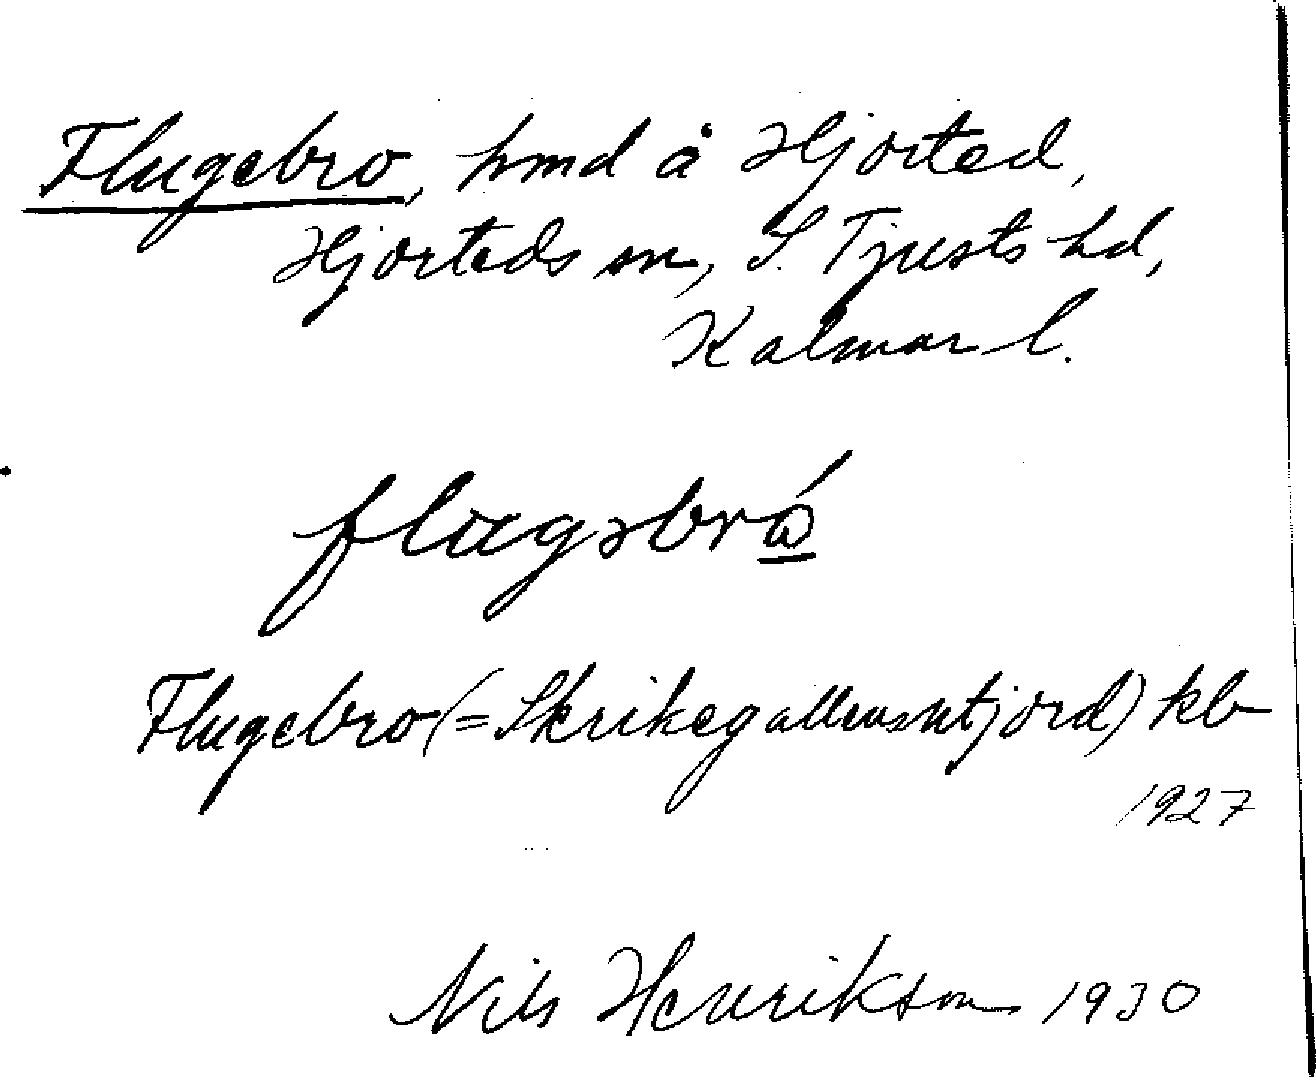 Flugebro, hmd å Hjorted,
Hjorteds sn, S. Tjusts hd,
Kalmar l.
Flugebro (= jord) kb
1927
Nils Henrikson 1930